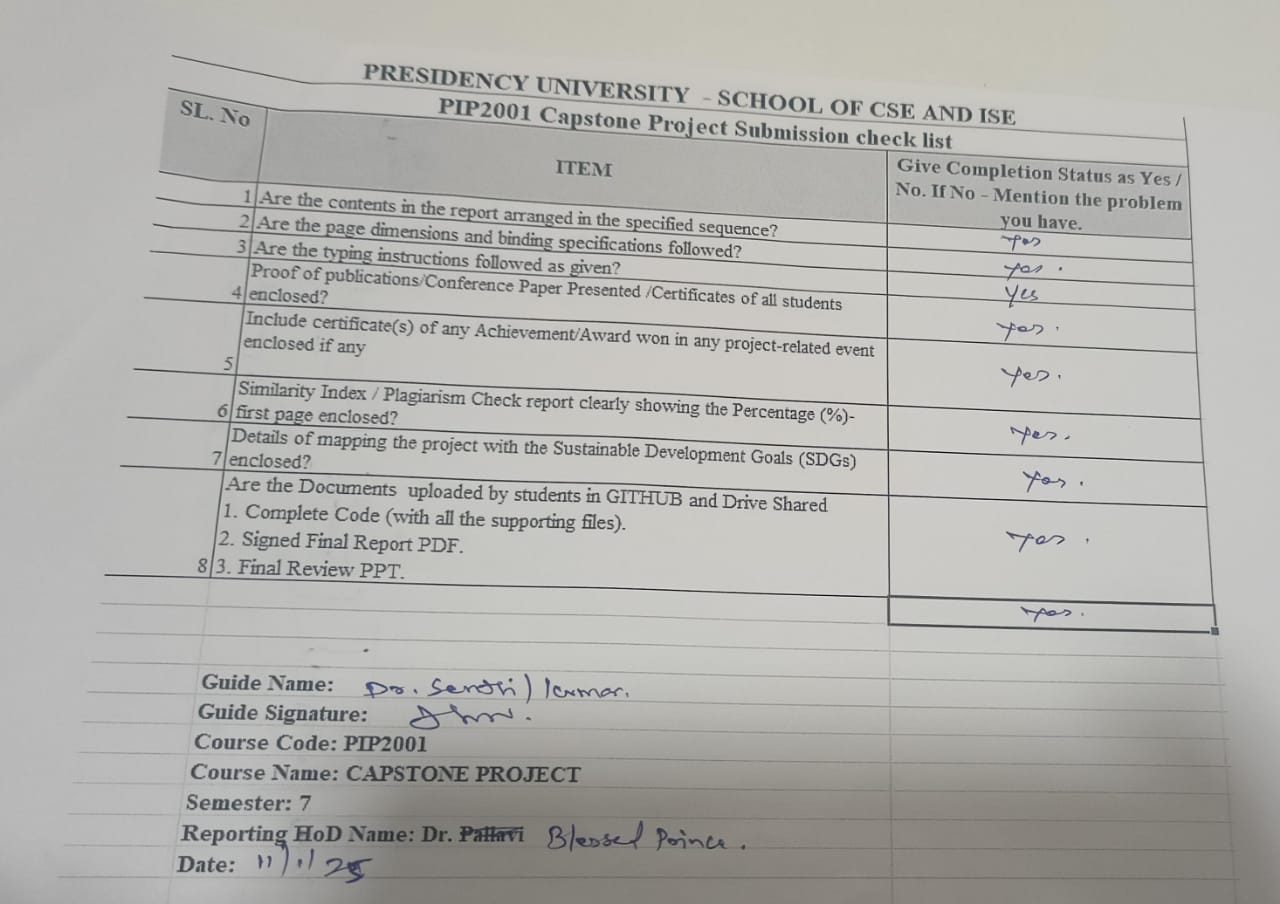 PRESIDENCY UNIVERSITY - SCHOOL OF CSE AND ISE
PIP2001 Capstone Project Submission check list
SL. No
ITEM
Give Completion Status as Yes /
No. If No - Mention the problem
you have.
1 Are the contents in the report arranged in the specified sequence?
yes
2 Are the page dimensions and binding specifications followed?
yes.
3 Are the typing instructions followed as given?
Yes
Proof of publications/Conference Paper Presented /Certificates of all students
4 enclosed?
yes.
Include certificate(s) of any Achievement/Award won in any project-related event
enclosed if any
5
yes.
Similarity Index / Plagiarism Check report clearly showing the Percentage (%)-
6 first page enclosed?
yes.
Details of mapping the project with the Sustainable Development Goals (SDGs)
7 enclosed?
yes.
Are the Documents uploaded by students in GITHUB and Drive Shared
1. Complete Code (with all the supporting files).
2. Signed Final Report PDF.
8 3. Final Review PPT.
yes.
yes.
Guide Name: Dr. Senthil kumar.
Guide Signature:
Course Code: PIP2001
Course Name: CAPSTONE PROJECT
Semester: 7
Reporting HoD Name: Dr. Pallavi Blessed Prince.
Date: